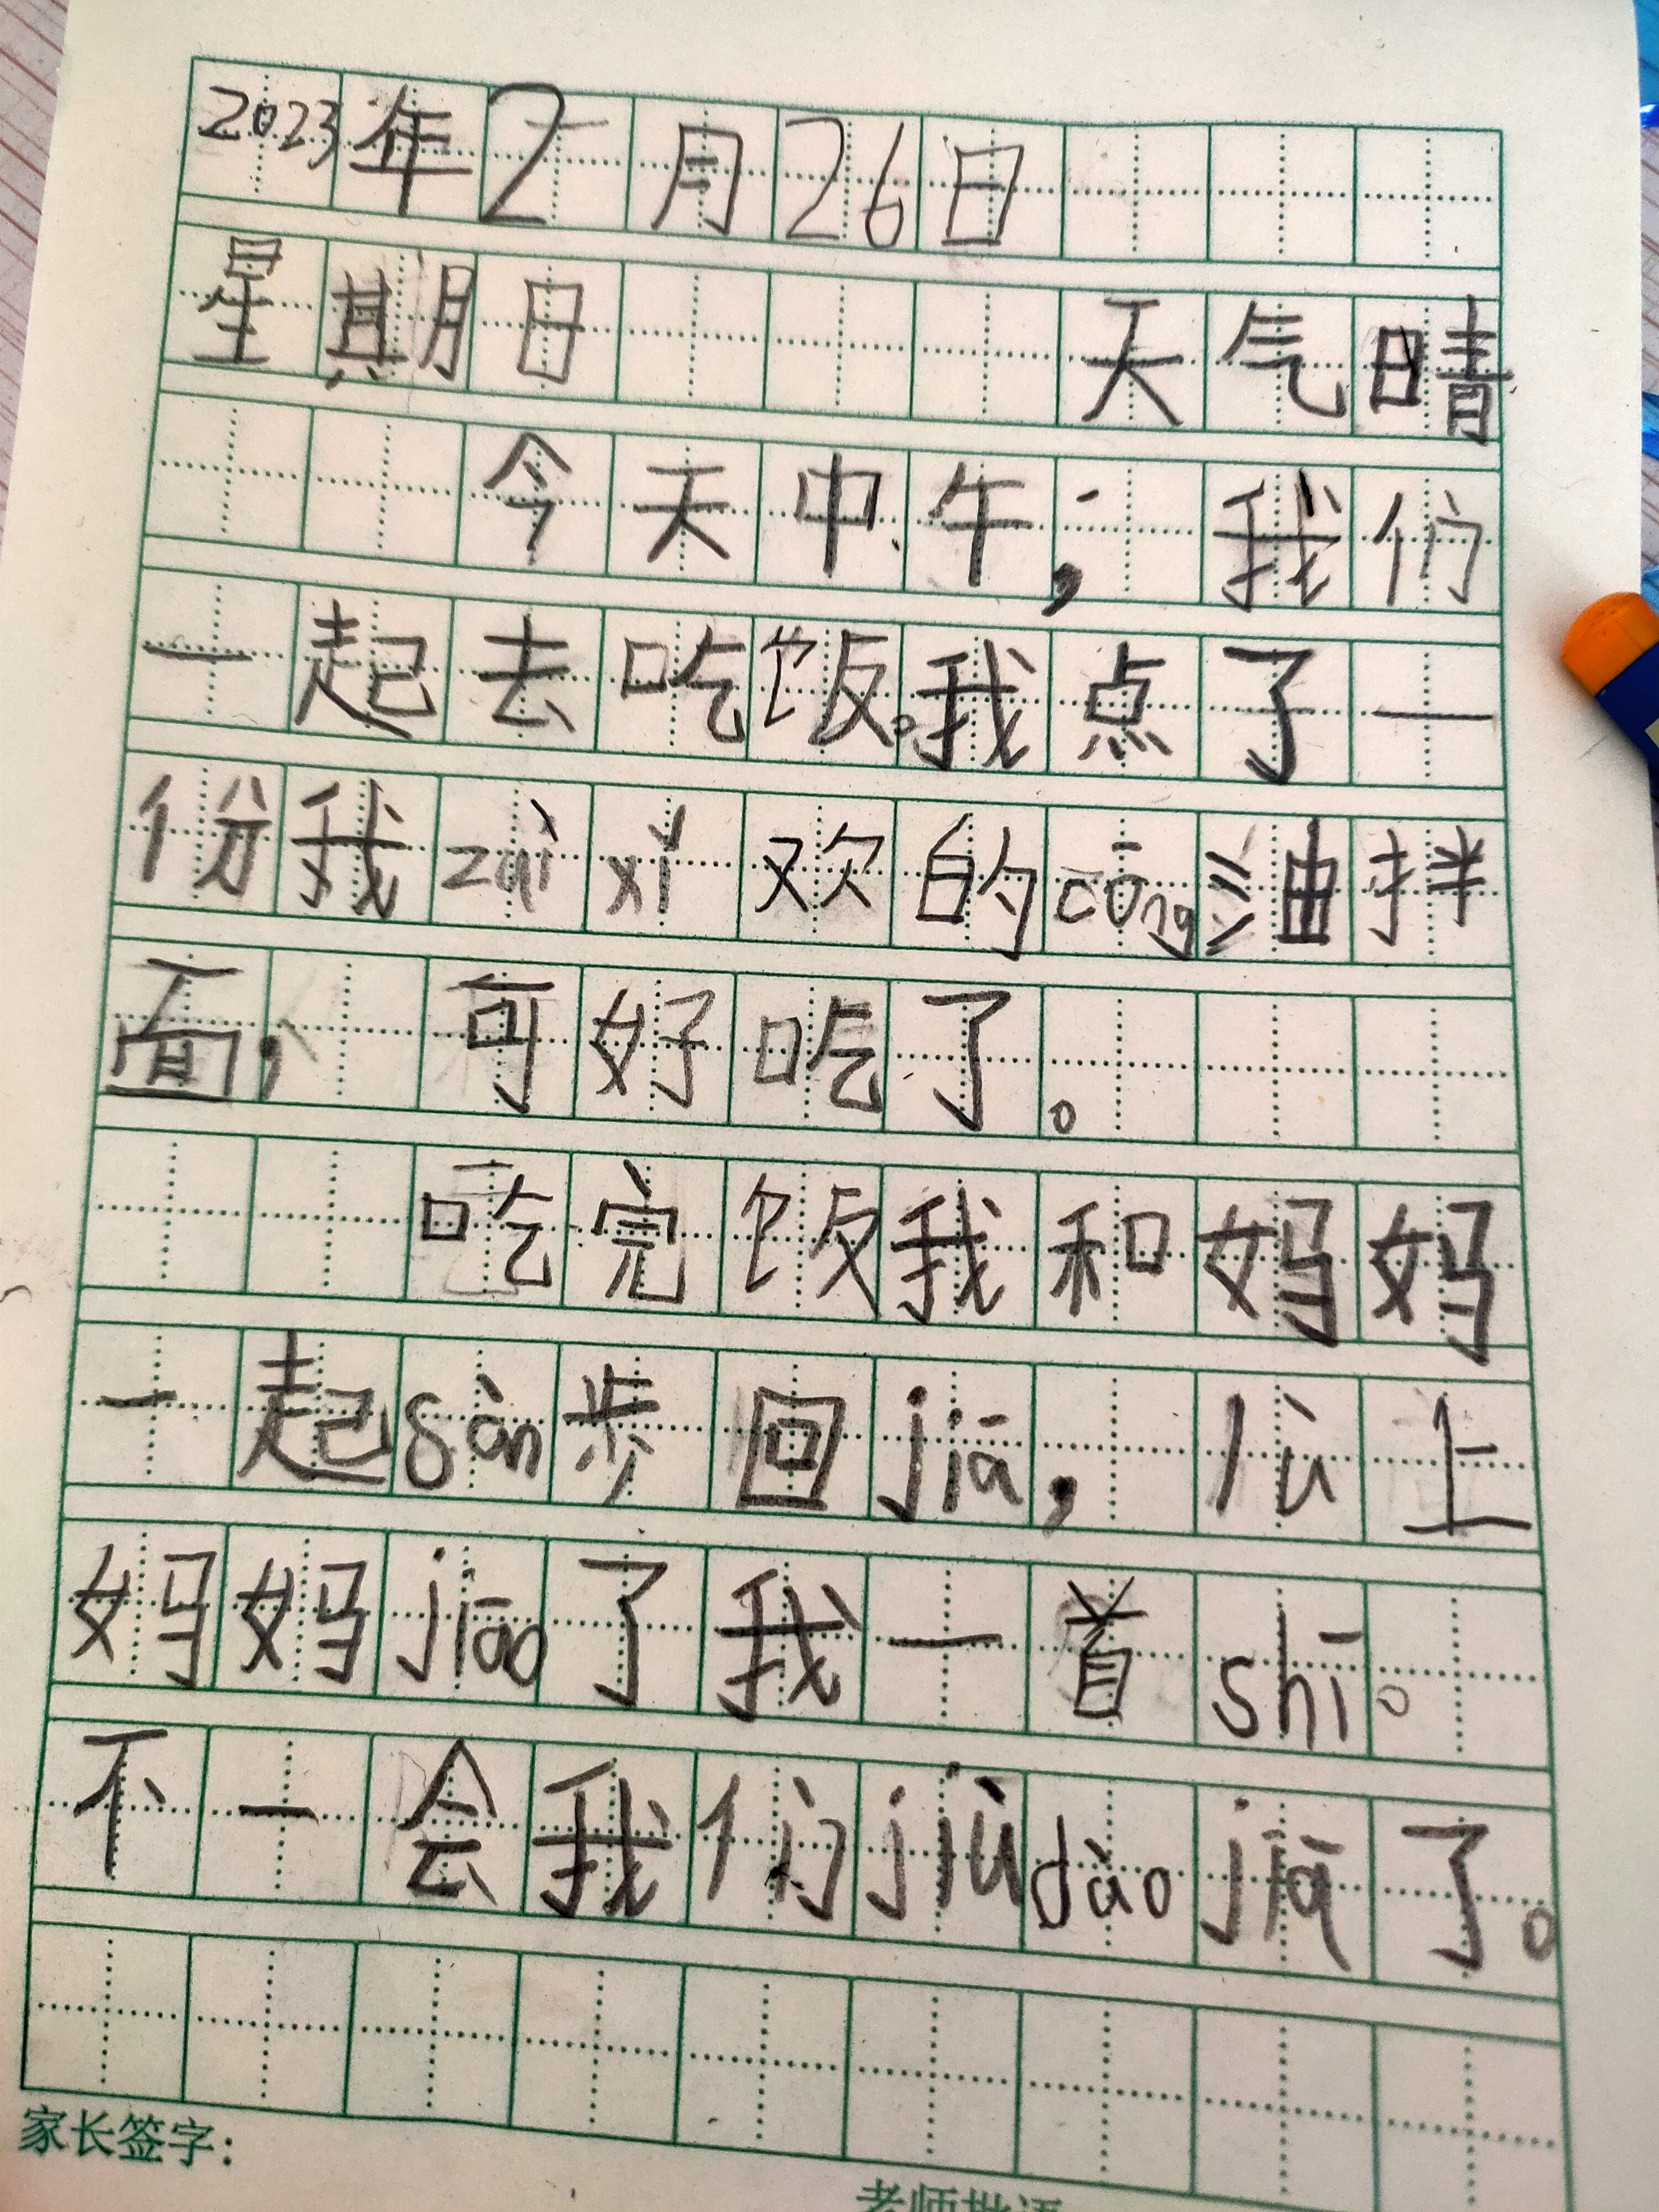 2023年2月26日
星期日 天气晴
今天中午，我们
一起去吃饭。我点了一
份我zuì xǐ欢的cōng油拌
面，可好吃了。
吃完饭我和妈妈
一起sàn步回jiā，lù上
妈妈jiāo了我一首shī。
不一会我们jiù dào jiā了。
家长签字：
老师批语